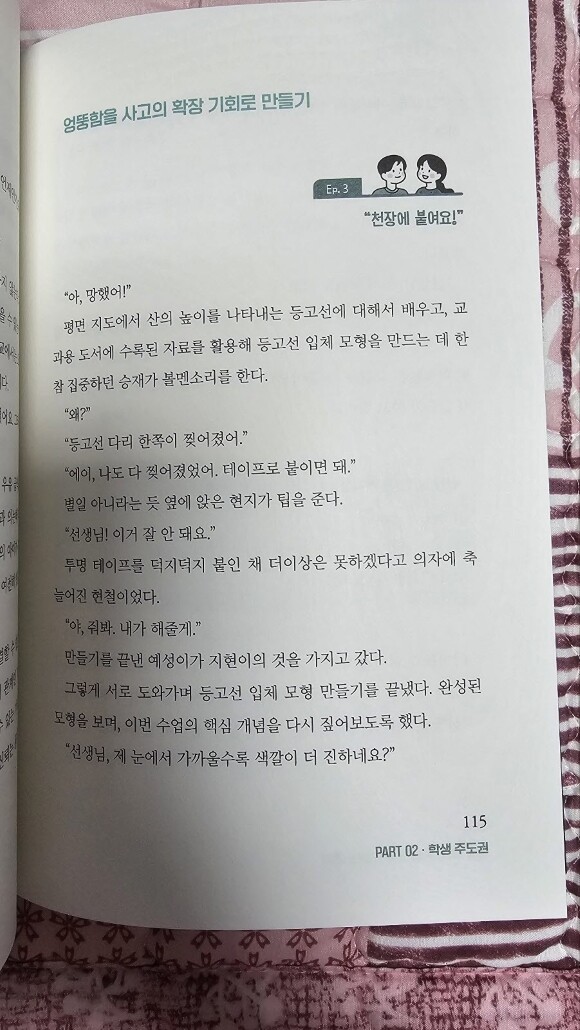 엉뚱함을 사고의 확장 기회로 만들기
Ep. 3
“천장에 붙여요!”
“아, 망했어!”
평면 지도에서 산의 높이를 나타내는 등고선에 대해서 배우고, 교
과용 도서에 수록된 자료를 활용해 등고선 입체 모형을 만드는 데 한
참 집중하던 승재가 볼멘소리를 한다.
“왜?”
“등고선 다리 한쪽이 찢어졌어.”
“에이, 나도 다 찢어졌었어. 테이프로 붙이면 돼.”
별일 아니라는 듯 옆에 앉은 현지가 팁을 준다.
“선생님! 이거 잘 안 돼요.”
투명 테이프를 덕지덕지 붙인 채 더이상은 못하겠다고 의자에 축
늘어진 현철이었다.
“야, 줘봐. 내가 해줄게.”
만들기를 끝낸 예성이가 지현이의 것을 가지고 갔다.
그렇게 서로 도와가며 등고선 입체 모형 만들기를 끝냈다. 완성된
모형을 보며, 이번 수업의 핵심 개념을 다시 짚어보도록 했다.
“선생님, 제 눈에서 가까울수록 색깔이 더 진하네요?”
115
PART 02 · 학생 주도권